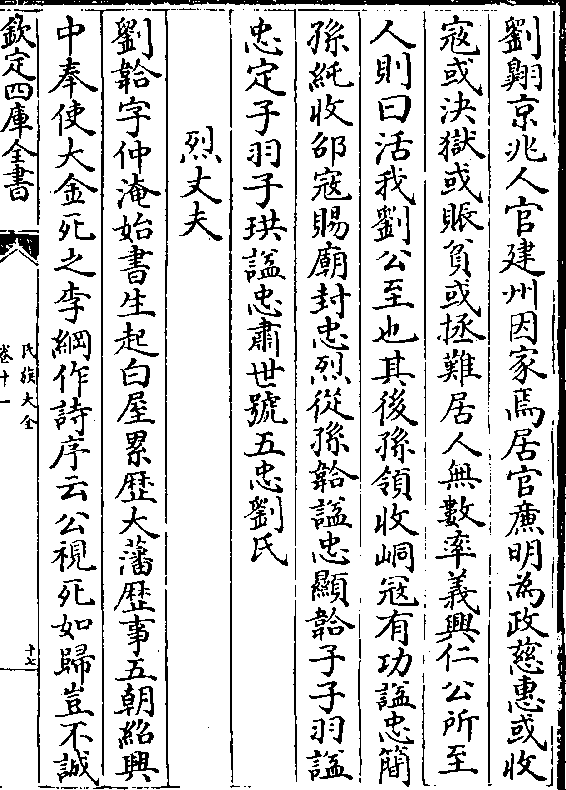 劉翶京兆人官建州因家焉居官廉明為政慈惠或收
寇或決獄或賑貧或拯難居人無數率義興仁公所至
人則曰活我劉公至也其後孫領收峒寇有功諡忠簡
孫純收邵寇賜廟封忠烈從孫韐諡忠顯韐子子羽諡
忠定子羽子珙諡忠肅世號五忠劉氏
烈丈夫
劉韐字仲淹始書生起白屋累歴大藩歴事五朝紹興
中奉使大金死之李綱作詩序云公視死如歸豈不誠
欽定四庫全書
氏族大全
卷十一
十七